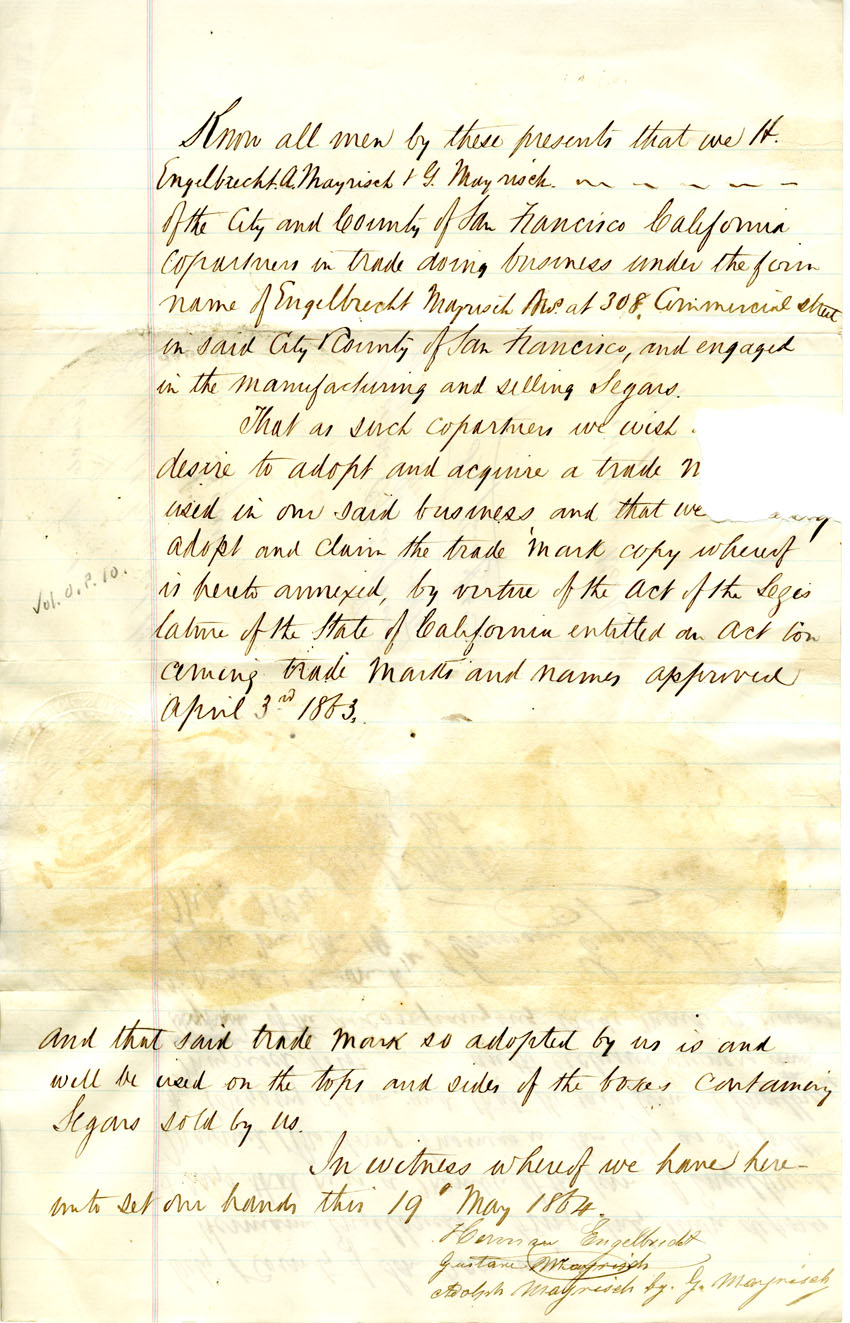 Know all men by these presents that we H.
Engelbrecht. A. Mayrisch & G. Mayrisch.
of the City and County of San Francisco California
copartners in trade doing business under the firm
name of Engelbrecht Mayrisch Bros. at 308. Commercial street
in said City & County of San Francisco, and engaged
in the manufacturing and selling Segars.
That as such copartners we wish
desire to adopt and acquire a trade
used in our said business and that we
adopt and claim the trade mark copy whereof
is hereto annexed, by virtue of the Act of the Legis
lature of the State of California entitled an Act con
cerning trade marks and names approved
April 3rd 1863.
Vol. O. P. 10.
and that said trade mark so adopted by us is and
will be used on the tops and sides of the boxes containing
Segars sold by us.
In witness whereof we have here-
unto set our hands this 19 May 1864.
Herman Engelbrecht
Gustave Mayrisch
Adolph Mayrisch by. G. Mayrisch